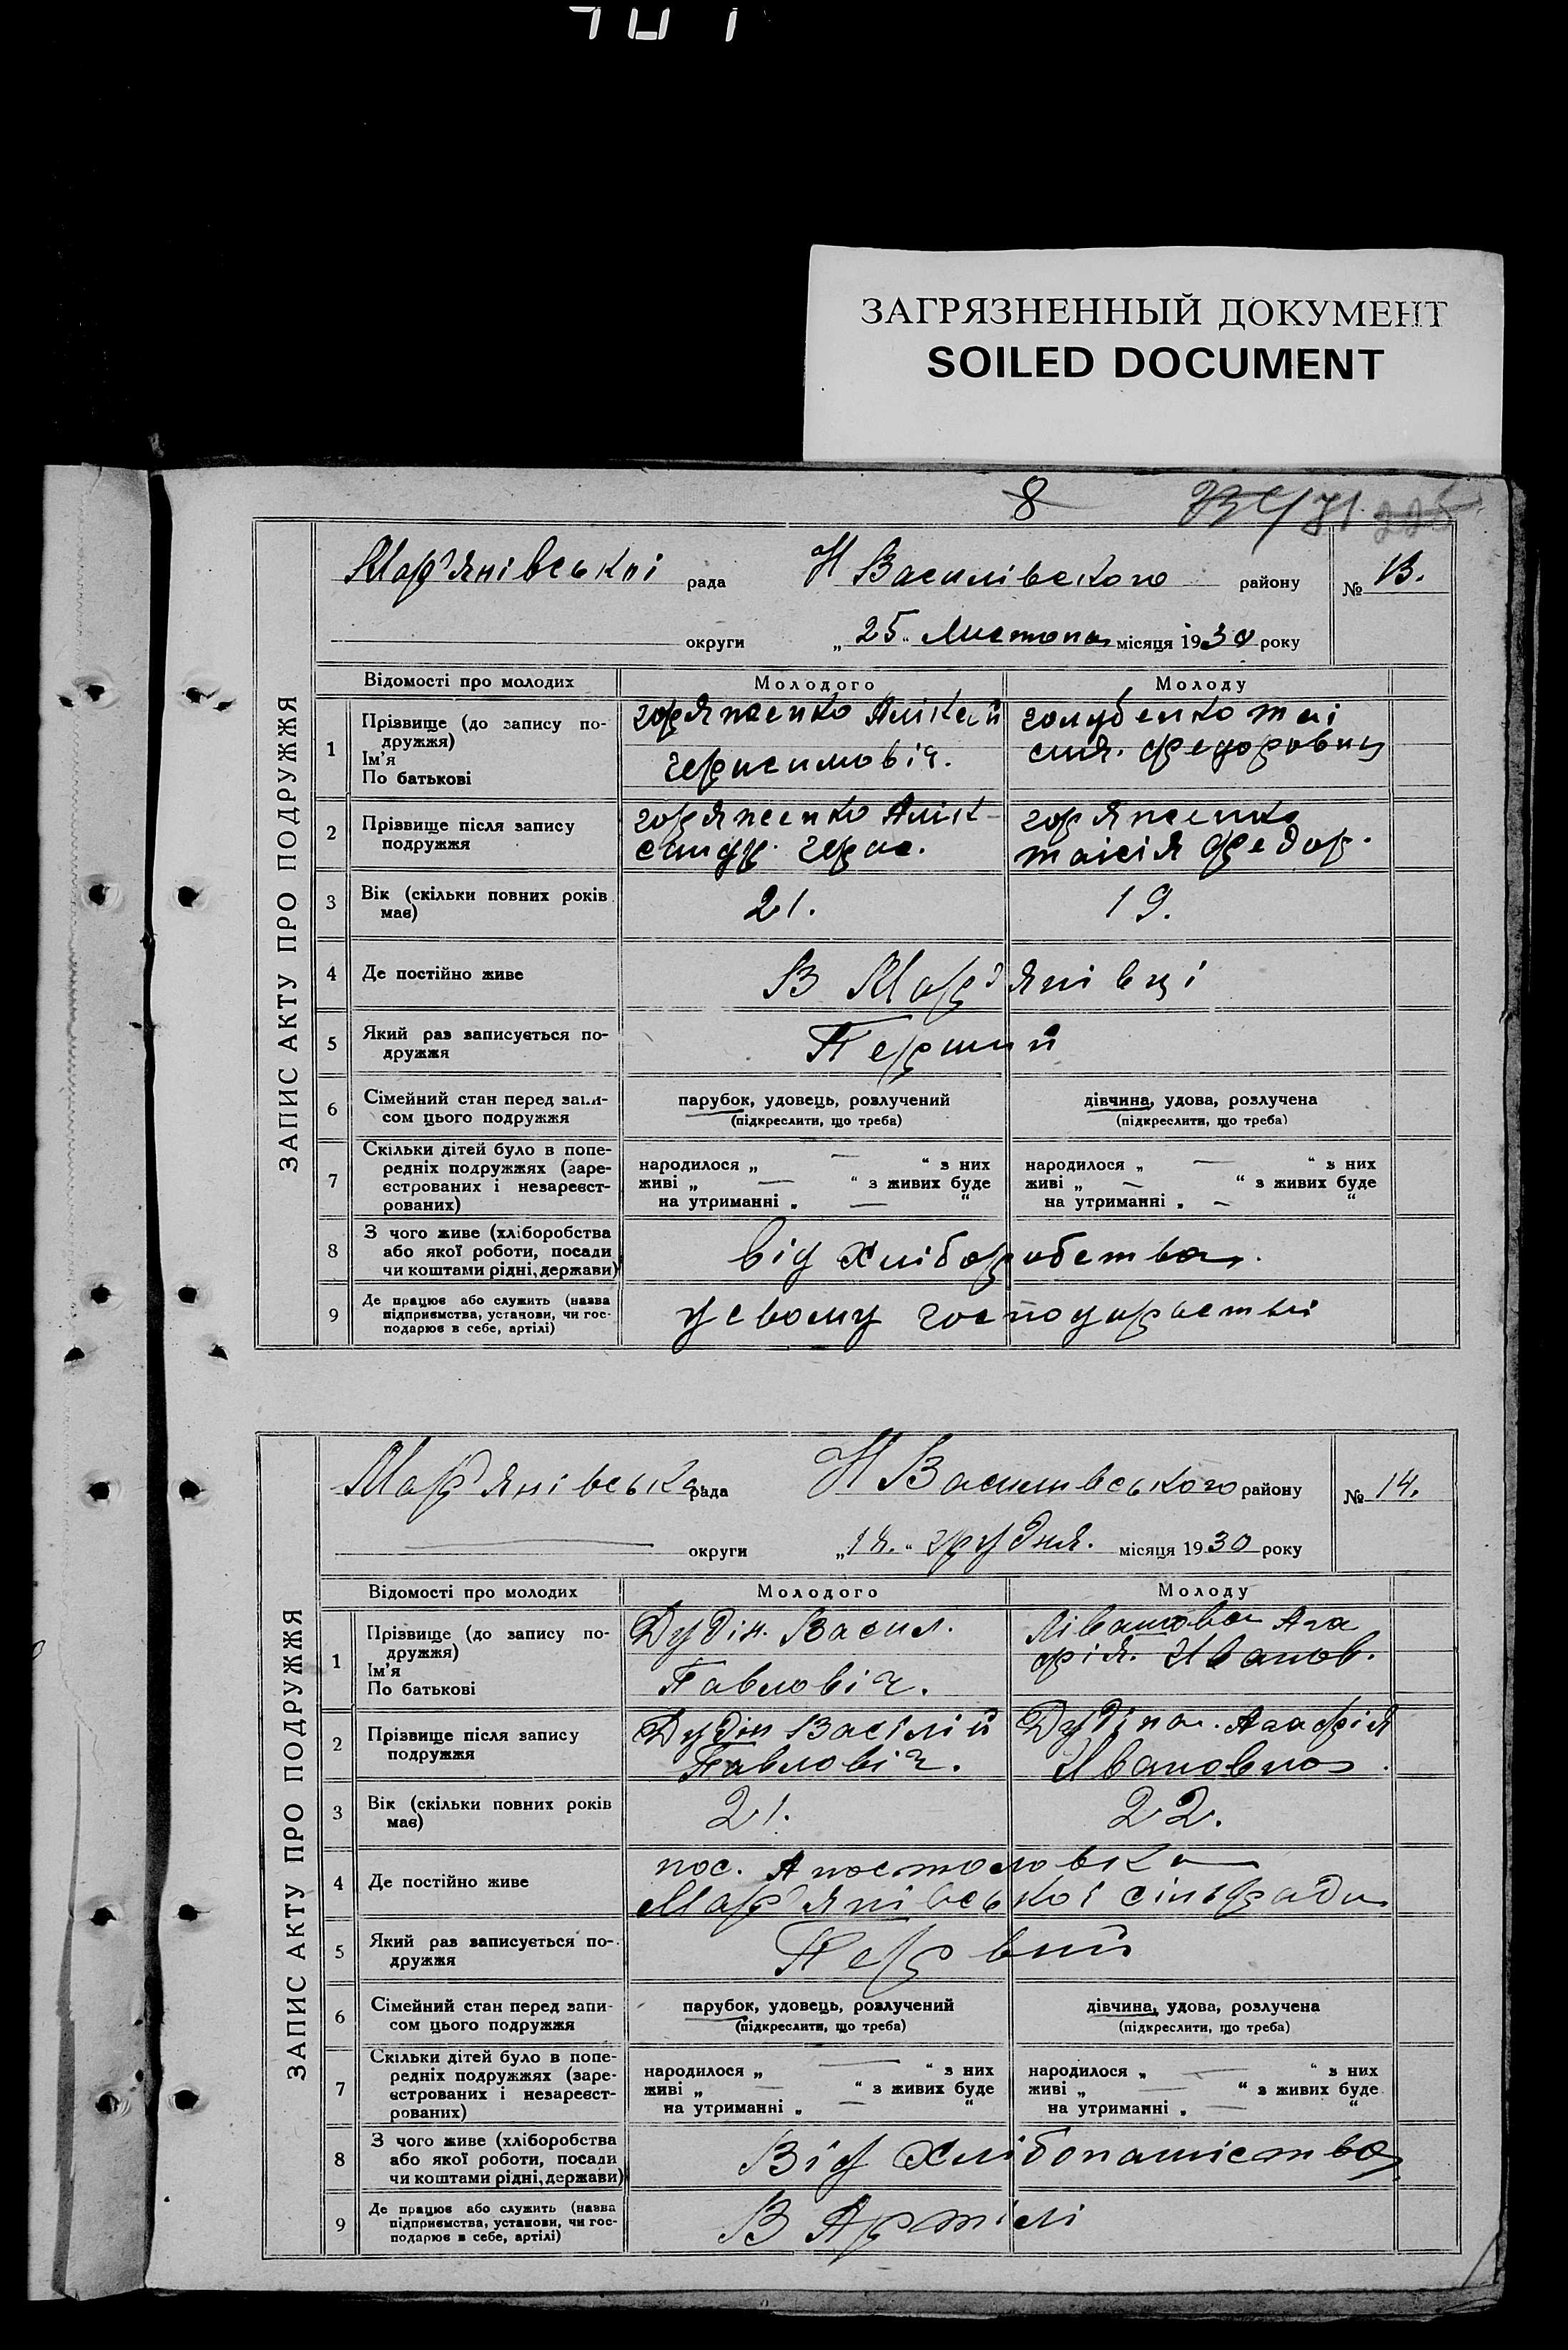 ЗАГРЯЗНЕННЫЙ ДОКУМЕНТ
SOILED DOCUMENT
8
ЗАПИС АКТУ ПРО ПОДРУЖЖЯ
Мар'янівської рада Н Василівского району № 13.
округи „25“ Листопа місяця 1930 року
Відомості про молодих Молодого Молоду
1 Прізвище (до запису по-
дружжя)
Ім'я
По батькові
голубенко таі
сия. федоровна
герасимовіч.
2 Прізвище після запису
подружжя
таісія федор.
сандр. герас.
3 Вік (скільки повних років
має)
21. 19.
4 Де постійно живе В Мар'янівці
5 Який раз записується по-
дружжя
Перший
6 Сімейний стан перед запи-
сом цього подружжя
парубок, удовець, розлучений
(підкреслити, що треба)
дівчина, удова, розлучена
(підкреслити, що треба)
7 Скільки дітей було в попе-
редніх подружжях (заре-
єстрованих і незареєст-
рованих)
народилося „ — “ з них
живі „ — “ з живих буде
на утриманні „ — “
народилося „ — “ з них
живі „ — “ з живих буде
на утриманні „ — “
8 З чого живе (хліборобства
або якої роботи, посади
чи коштами рідні, держави)
від хліборобства.
9 Де працює або служить (назва
підприємства, установи, чи гос-
подарює в себе, артілі)
у свому господарстві
ЗАПИС АКТУ ПРО ПОДРУЖЖЯ
Мар'янівська рада Н Василивського району № 14.
округи „ “ грудня. місяця 1930 року
Відомості про молодих Молодого Молоду
1 Прізвище (до запису по-
дружжя)
Ім'я
По батькові
Дудін. Васил.
Павловіч.
Ага
фія. Иванов.
2 Прізвище після запису
подружжя
Дудін Васілій
Павловіч.
Дудіна. Агафія
Ивановна
3 Вік (скільки повних років
має)
21. 22.
4 Де постійно живе
пос. Апостоловка
Мар'янівської сільради
5 Який раз записується по-
дружжя
Первий
6 Сімейний стан перед запи-
сом цього подружжя
парубок, удовець, розлучений
(підкреслити, що треба)
дівчина, удова, розлучена
(підкреслити, що треба)
7 Скільки дітей було в попе-
редніх подружжях (заре-
єстрованих і незареєст-
рованих)
народилося „ — “ з них
живі „ — “ з живих буде
на утриманні „ — “
народилося „ — “ з них
живі „ — “ з живих буде
на утриманні „ — “
8 З чого живе (хліборобства
або якої роботи, посади
чи коштами рідні, держави)
Від Хлібопашіства
9 Де працює або служить (назва
підприємства, установи, чи гос-
подарює в себе, артілі)
В Артілі